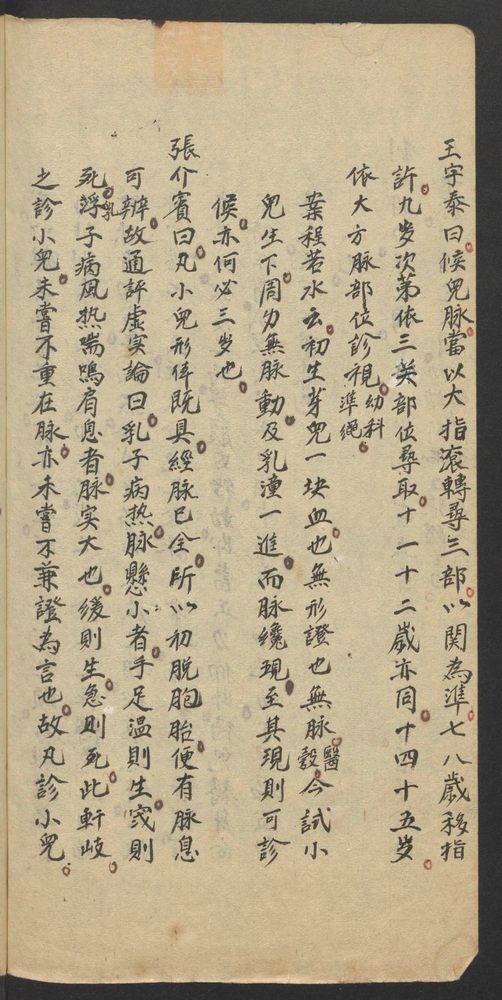 王宇泰曰候兒脉當以大指滚轉尋三部以関為準七八歳移指
許九岁次第依三关部位尋取十一十二歳亦同十四十五岁
依大方脉部位診視幼科準繩
案程若水云初生芽兒一块血也無形證也無脉醫彀今試小
兒生下周身無脉動及乳潼一進而脉纔現至其現則可診
候亦何必三岁也
張介賓曰凡小兒形体既具經脉已全所以初脱胞胎便有脉息
可辨故通評虚实論曰乳子病热脉懸小者手足温則生寒則
死乳子病風热喘鳴肩息者脉实大也缓則生急則死此軒岐
之診小兒未嘗不重在脉亦未嘗不兼證為言也故凡診小兒